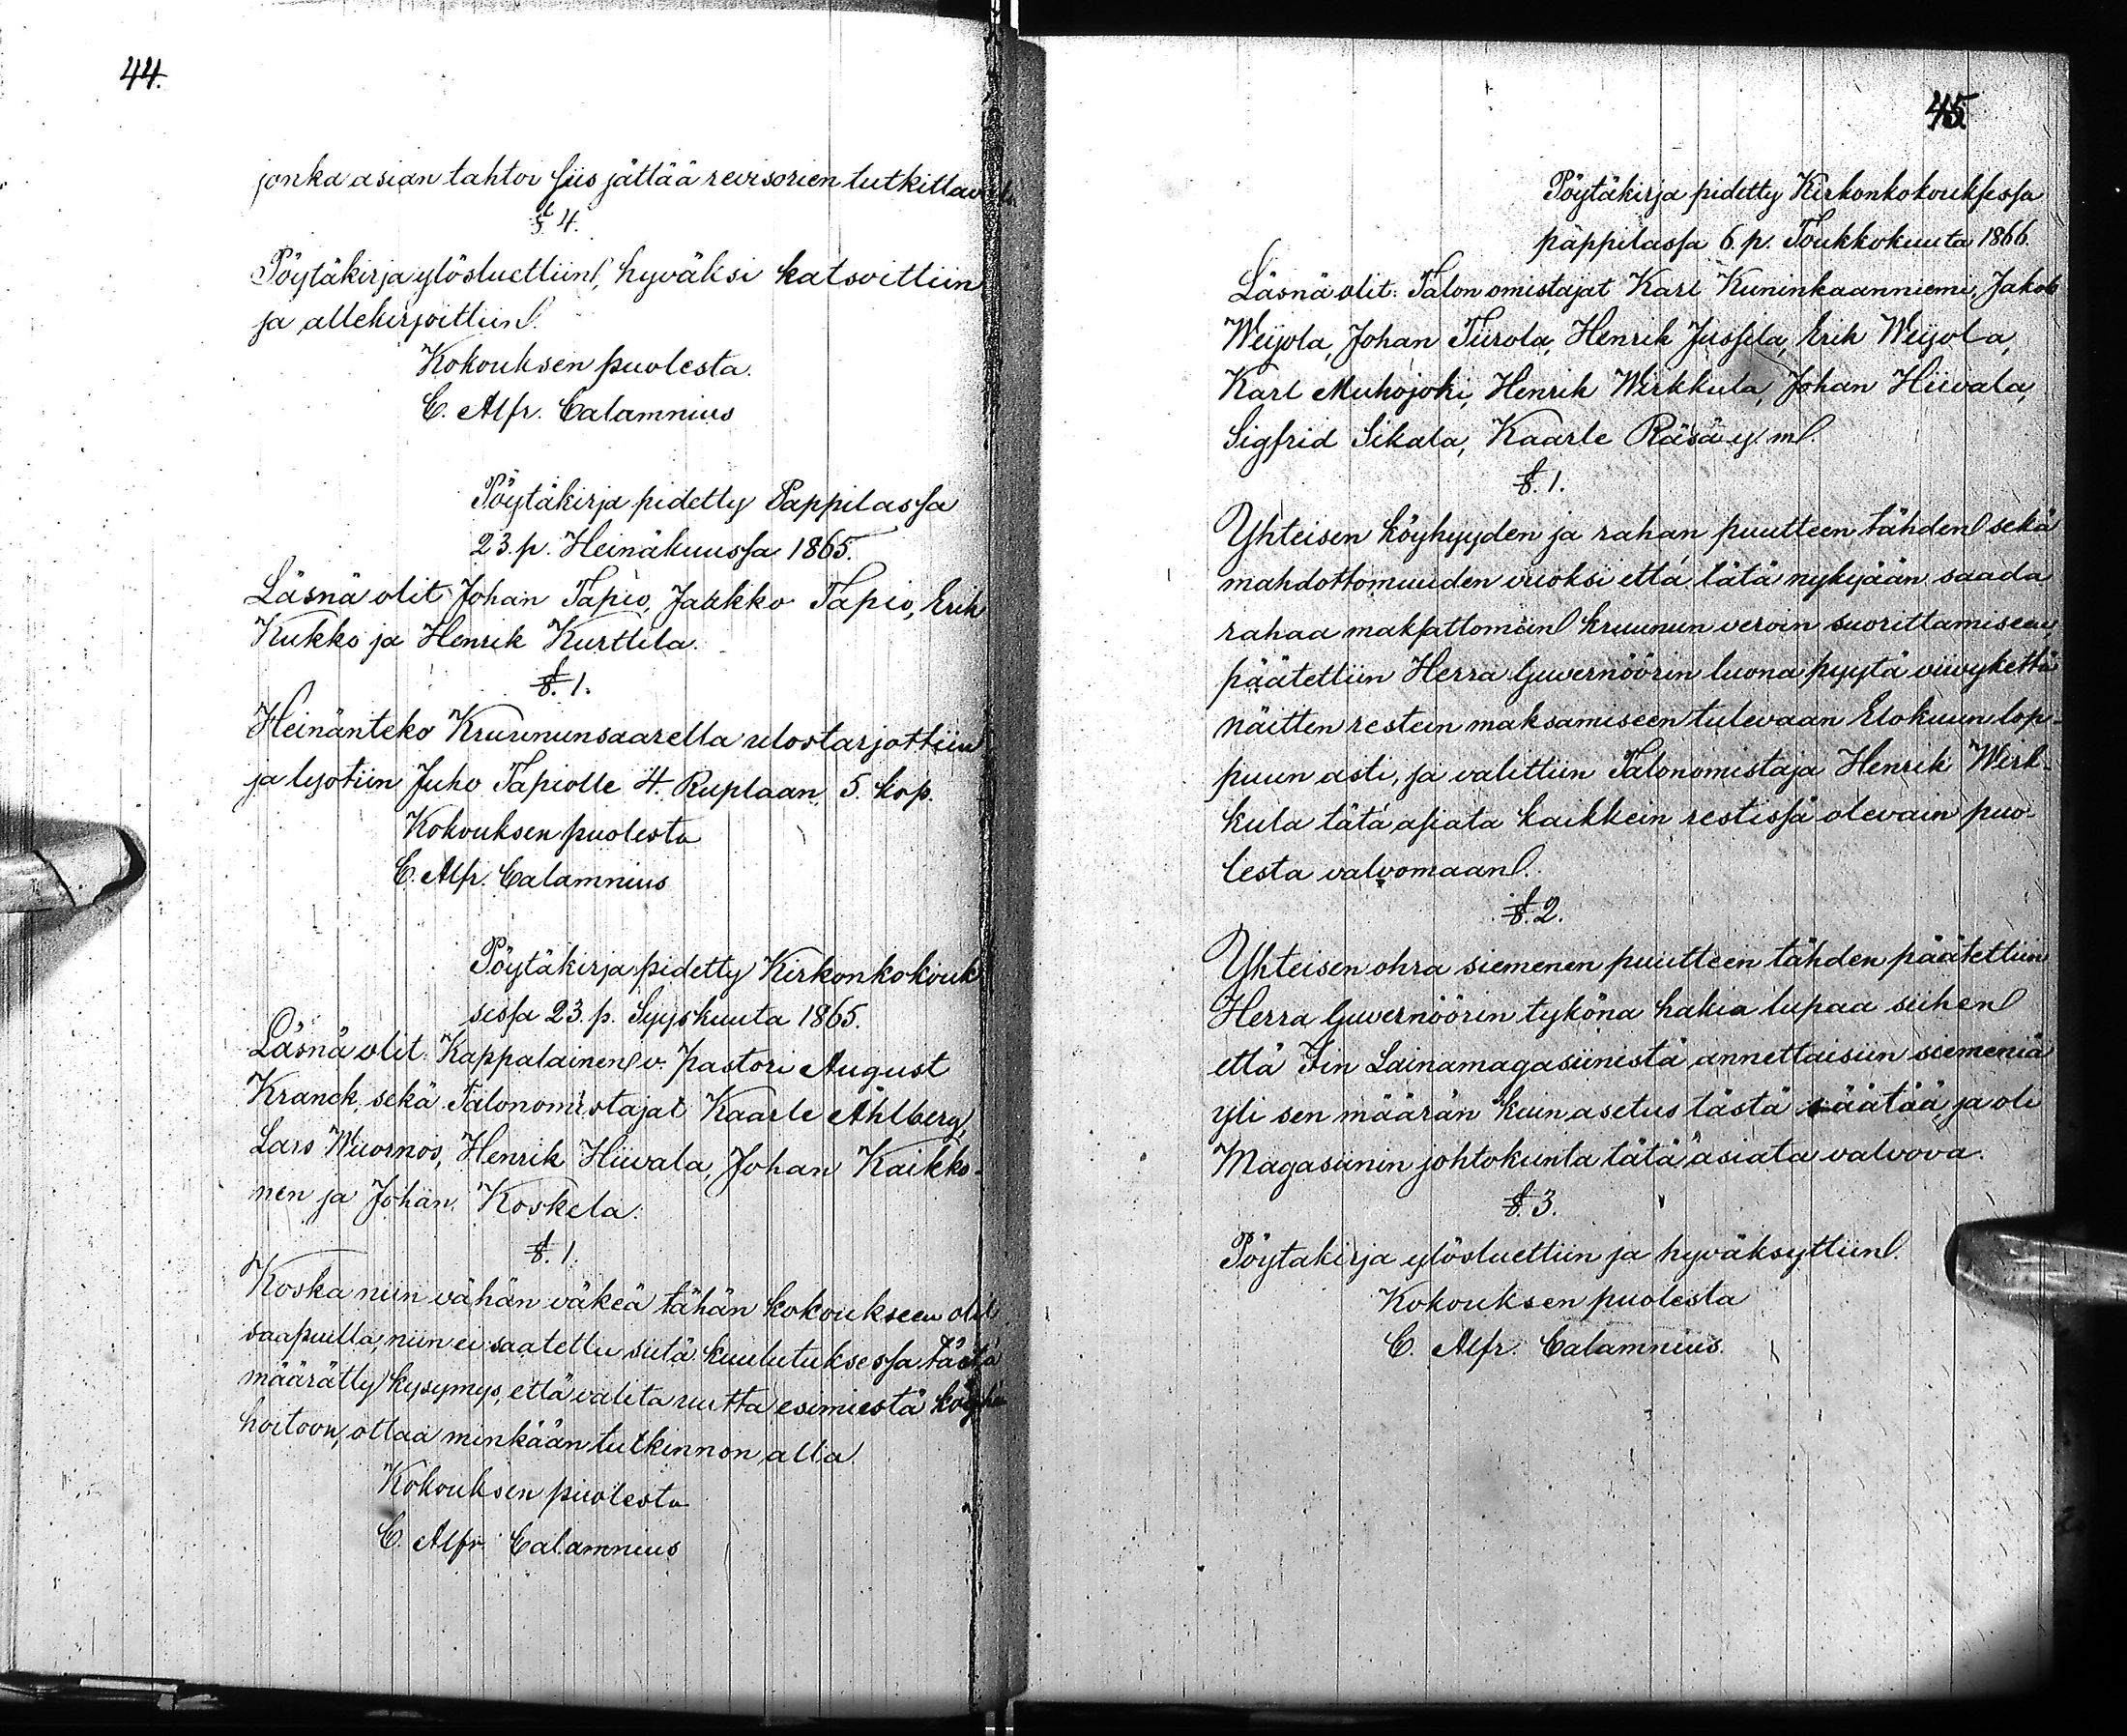 44.
jonka asian tahtoi siis jättää revisorien tutkittavaksi.
§ 4.
Pöytäkirja ylösluettiin, hyväksi katsottiin
ja allekirjoittiin.
Kokouksen puolesta.
C. Alfr. Calamnius
Pöytäkirja pidetty Pappilassa
23. p. Heinäkuussa 1865.
Läsnä olit Johan Tapio, Jaakko Tapio, Erik
Kukko ja Henrik Kurttila.
§. 1.
Heinänteko Kruununsaarella ulostarjottiin
ja lyötiin Juho Tapiolle 4. Ruplaan 5. kop.
Kokouksen puolesta
C. Alfr. Calamnius
Pöytäkirja pidetty Kirkonkokouk
sessa 23. p. Syyskuuta 1865.
Läsnä olit: Kappalainen v. pastori August
Kranck, sekä Talonomistajat Kaarle Ahlberg,
Lars Wuornos, Henrik Hiivala, Johan Kaikko-
nen ja Johan Koskela.
§. 1.
Koska niin vähän väkeä tähän kokoukseen olit
saapuilla, niin ei saatettu siitä kuulutuksessa tästä
määrätty kysymys, että valita uutta esimiestä köyhän
hoitoon, ottaa minkään tutkinnon alla.
Kokouksen puolesta
C. Alfr. Calamnius
45.
Pöytäkirja pidetty Kirkonkokouksessa
pappilassa 6. p. Toukkokuuta 1866.
Läsnä olit: Talon omistajat Karl Kuninkaanniemi, Jakob
Weijola, Johan Tiirola, Henrik Jussila, Erik Weijola,
Karl Muhojoki, Henrik Wirkkula, Johan Hiivala,
Sigfrid Sikala, Kaarle Räsä y. m.
§. 1.
Yhteisen köyhyyden ja rahan puutteen tähden sekä
mahdottomuuden vuoksi että tätä nykyjään saada
rahaa maksattomain kruunun veroin suorittamiseen,
päätettiin Herra Guvernöörin luona pyytä viivykettä
näitten restein maksamiseen tulevaan Elokuun lop-
puun asti, ja valittiin Talonomistaja Henrik Wirk-
kula tätä asiata kaikkein restissä olevain puo-
lesta valvomaan.
§. 2.
Yhteisen ohra siemenen puutteen tähden päätettiin
Herra Guvernöörin tykönä hakia lupaa siihen
että Iin Lainamagasiinistä annettaisiin siemeniä
yli sen määrän kuin asetus tästä säätää, ja oli
Magasiinin johtokunta tätä asiata valvova.
§. 3.
Pöytakirja ylösluettiin ja hyväksyttiin.
Kokouksen puolesta
C. Alfr. Calamnius.